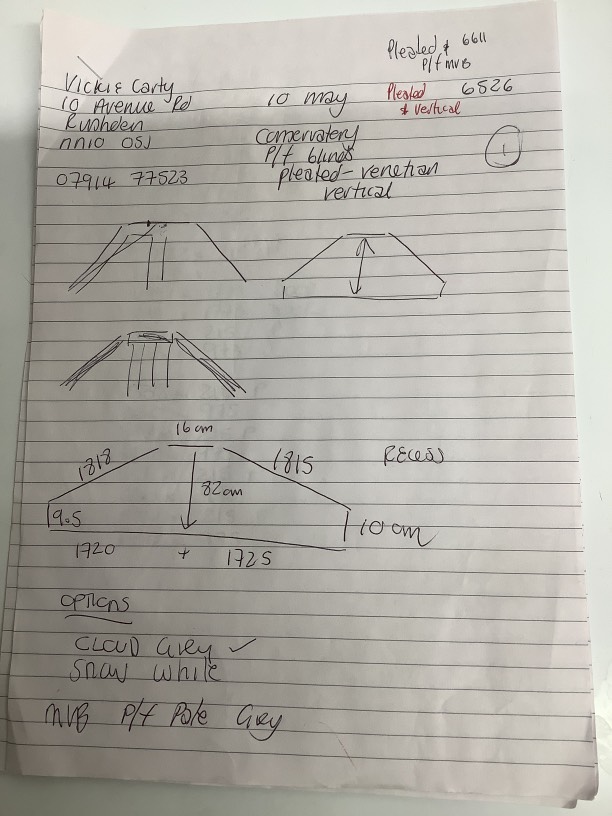 Pleated & 6611
P/f MVB
Vickie Carty
10 May
Pleated 6526
& vertical
10 Avenue Rd
Rushden
NN10 OSJ
07914 77523
Conservatory
P/f blinds
pleated - venetian
vertical
1
16cm
1818
1815
Recess
82cm
9.5
10 cm
1720 + 1725
OPTIONS
CLOUD Grey ✓
Snow White
MVB P/f Pale Grey